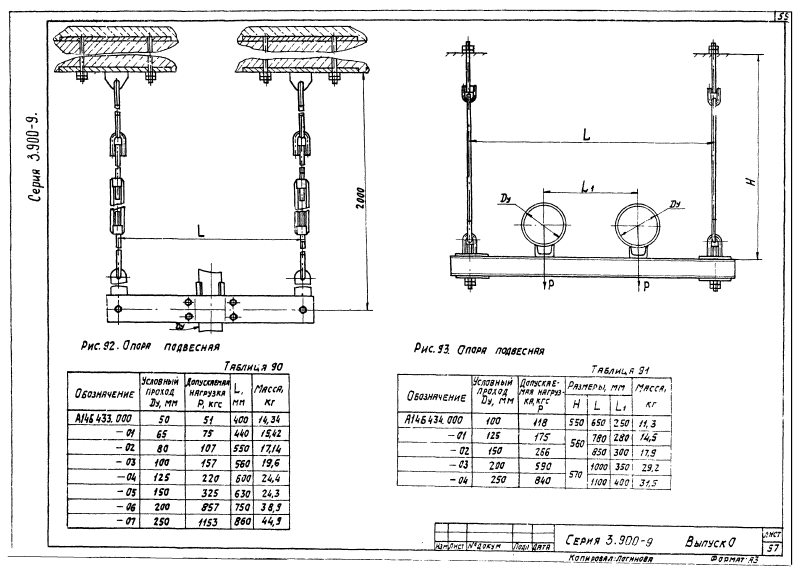 55
Серия 3.900-9.
L
2000
Ду
Рис. 92. Опора подвесная
L
L1
H
Ду
Ду
P
P
Рис. 93. Опора подвесная
Таблица 90
Обозначение | Условный проход Ду, мм | Допускаемая нагрузка Р, кгс | L, мм | Масса, кг
А14Б 433.000 | 50 | 51 | 400 | 14,34
-01 | 65 | 75 | 440 | 15,42
-02 | 80 | 107 | 550 | 17,14
-03 | 100 | 157 | 560 | 19,6
-04 | 125 | 220 | 600 | 24,4
-05 | 150 | 325 | 630 | 24,3
-06 | 200 | 857 | 750 | 38,9
-07 | 250 | 1153 | 860 | 44,9
Таблица 91
Обозначение | Условный проход Ду, мм | Допускае-мая нагруз-ка, кгс Р | Размеры, мм | Масса, кг
H | L | L1
А14Б 434.000 | 100 | 118 | 550 | 650 | 250 | 11,3
-01 | 125 | 175 | 560 | 780 | 280 | 14,5
-02 | 150 | 266 | 850 | 300 | 17,9
-03 | 200 | 590 | 570 | 1000 | 350 | 29,2
-04 | 250 | 840 | 1100 | 400 | 31,5
Изм Лист № докум Подп Дата
Серия 3.900-9 Выпуск 0
Лист
57
Копировал: Логинова Формат: А3